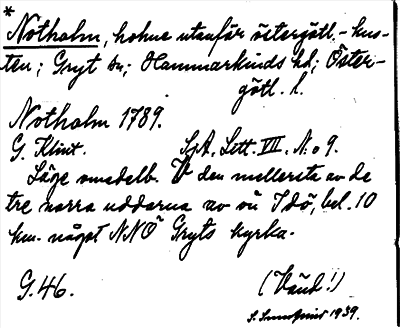 *
Notholm, holme utanför östergötl.-kus-
ten; Gryt sn; Hammarkinds hd; Öster-
götl. l.
Notholm 1789.
G. Klint. SjA. Lett. VII. N:o 9.
Läge omedelb. V den mellersta av de
tre norra uddarna av ön Idö, bel. 10
km. något NNÖ Gryts kyrka.
G.46. (Vänd!)
1939.